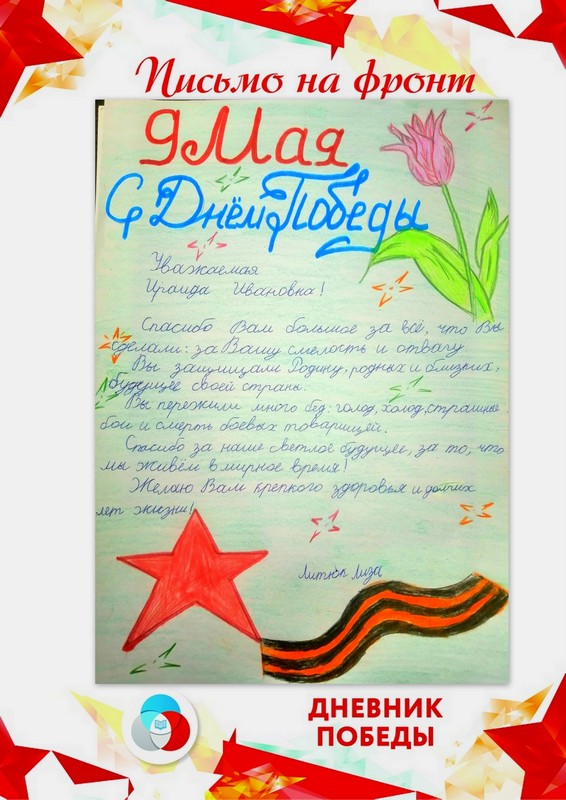 Письмо на фронт
9 Мая
С Днём Победы
Уважаемая
Ираида Ивановна!
Спасибо Вам большое за всё, что Вы
сделали: за Вашу смелость и отвагу.
Вы защищали Родину, родных и близких,
будущее своей страны.
Вы пережили много бед: голод, холод, страшные
бои и смерть боевых товарищей.
Спасибо за наше светлое будущее, за то, что
мы живём в мирное время!
Желаю Вам крепкого здоровья и долгих
лет жизни!
Лиза
ДНЕВНИК
ПОБЕДЫ